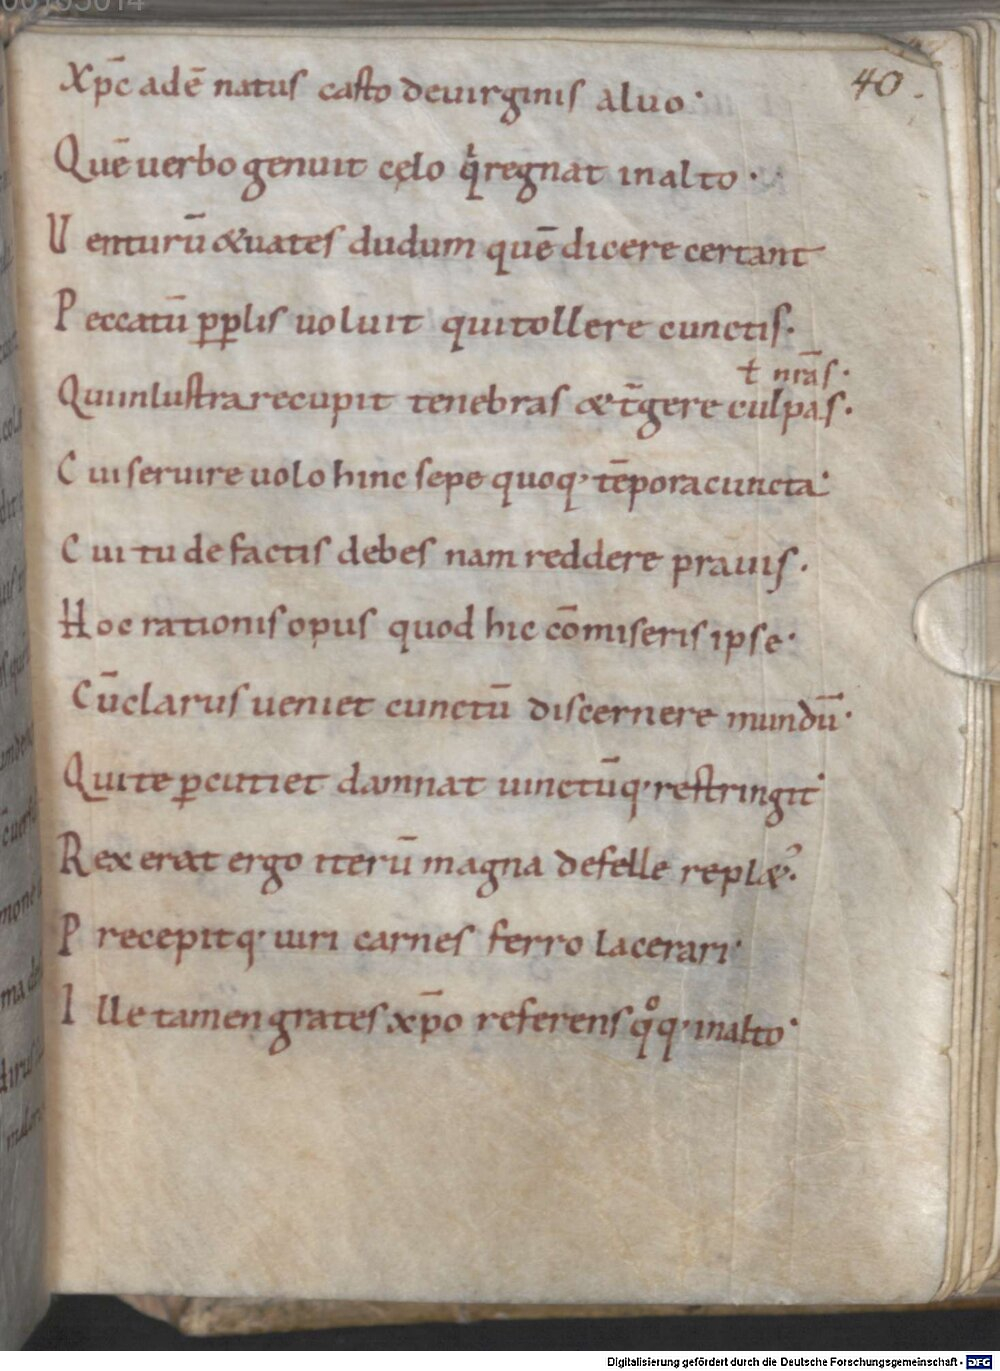 40.
xp̄c adē natus casto deuirginis aluo·
Quē uerbo genuit cęlo qͥ regnat inalto·
Venturū &uates dudum quē dicere certant
Peccatū ꝑplis uoluit qui tollere cunctis·
ł nr̄as·
Qui inlustra recupit tenebras & t̄gere culpas·
Cui seruire uolo hinc sepe quoq· tēpora cuncta·
Cui tu de factis debes nam reddere prauis·
Hoc rationis opus quod hic cōmiseris ipse·
Cū clarus ueniet cunctū discernere mundū·
Qui te ꝑcutiet damnat uinctūq· restringit·
Rex erat ergo iterū magna defelle repl&ˀ·
Precepitq· uiri carnes ferro lacerari·
Ille tamen grates xp̄o referens qͦq· inalto·
Digitalisierung gefördert durch die Deutsche Forschungsgemeinschaft - DFG